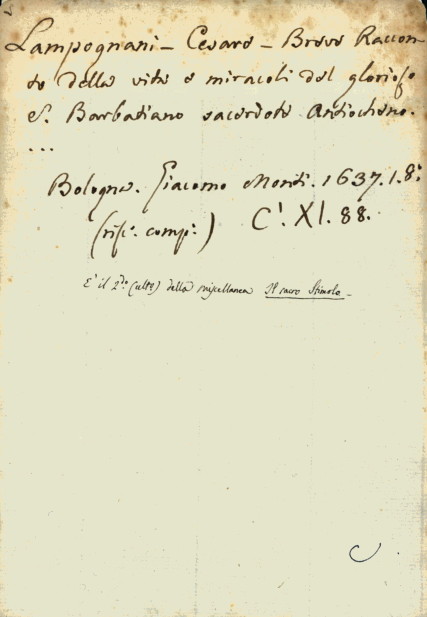 Lampognani - Cesare - Breve Raccon-
to della vita e miracoli del glorioso
S. Barbatiano sacerdote Antiocheno.
...
Bologna. Giacomo Monti. 1637. 1. 8.°
(rifᵉ. compᵉ.) C'. XI. 88.
E' il 2.do (ult.o) della miscellanea Il sacro Stimolo -